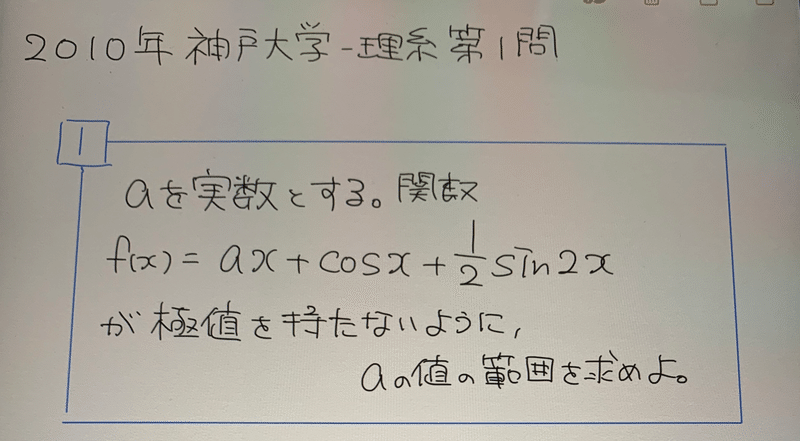 2010年 神戸大学-理系 第1問
1
aを実数とする。関数
f(x) = ax + cosx + 1/2 sin2x
が極値を持たないように,
aの値の範囲を求めよ。